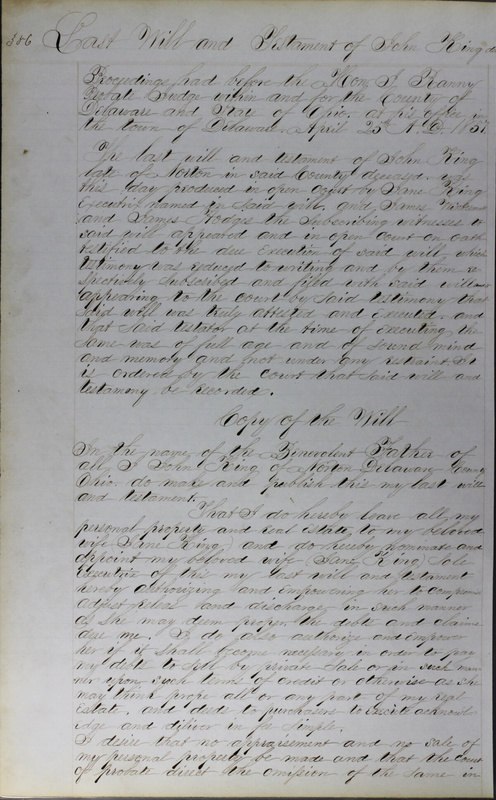 386 Last Will and Testament of John King
Proceedings had before the Hon. T. Ranny
Probate Judge within and for the County of
Delaware and State of Ohio, at his office in
the town of Delaware, April 25th A.D. 185
The last will and testament of John King
late of Norton in said County deceased was
this day produced in open court by Jane King
Executrix named in said will, and James
and James Hodges the Subscribing witnesses to
said will appeared and in open Court on oath
testified to the due Execution of said will, which
testimony was reduced to writing and by them re
spectively Subscribed and filed with said will
appearing to the court by said testimony that
said will was truly attested and Executed, and
that said testator at the time of Executing the
Same was of full age and of Sound mind
and memory and not under any restraint. It
is ordered by the Court that Said will and
testammy be recorded.
Copy of the Will
In the name of the Benevolent Father of
all, I John King of Norton Delaware County
Ohio do make and publish this my last will
and testament.
That I do hereby leave all my
personal property and real Estate, to my beloved
wife (Jane King) and do hereby nominate and
appoint my beloved wife (Jane King) Sole
Executrix of this my last will and testament
hereby authorizing and Empowering her to compromise
adjust release and discharge in such manner
as She may deem proper the debts and claims
due me. I do also authorize and Empower
her if it Shall become necessary in order to pay
my debts to Sell by private Sale or in Such man
ner upon Such terms of credit or otherwise as she
may think prope all or any part of my real
Estate, and deeds to purchasers to Execute acknowl
edge and diliver in fee Simple.
I desire that no appraisement and no sale of
my personal property be made and that the Court
of probate direct the omission of the Same in